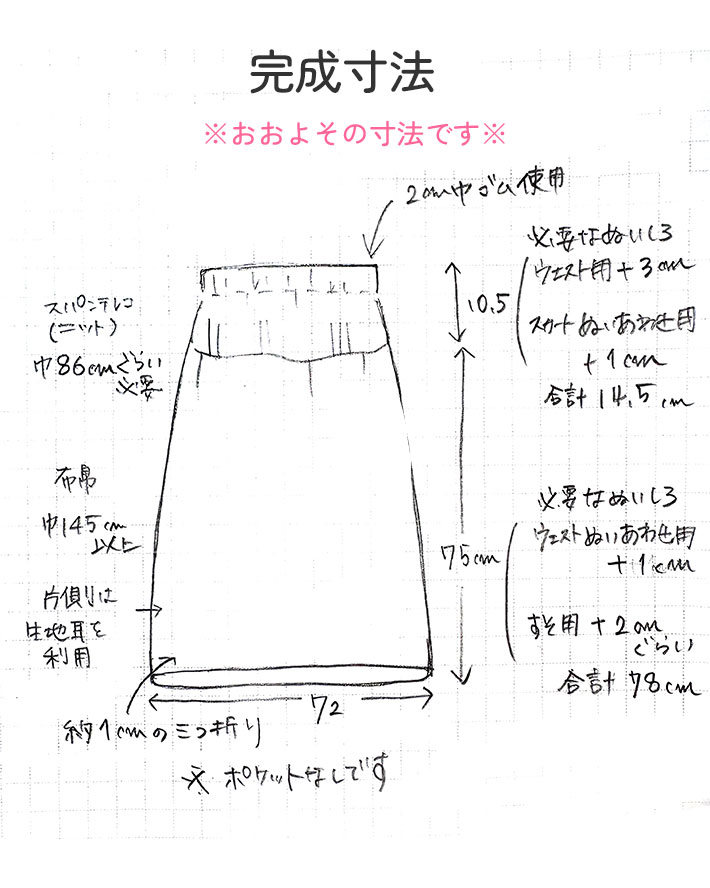 完成寸法
※おおよその寸法です※
2cm巾ゴム使用
必要なぬいしろ
ウエスト用+3cm
スカートぬいあわせ用
+1cm
合計14.5cm
10.5
スパンテレコ
(ニット)
巾86cmぐらい
必要
布帛
巾145cm
以上
片側は
生地耳を
利用
75cm
必要なぬいしろ
ウエストぬいあわせ用
+1cm
すそ用+2cm
ぐらい
合計78cm
72
約1cmの三つ折り
※ポケットなしです